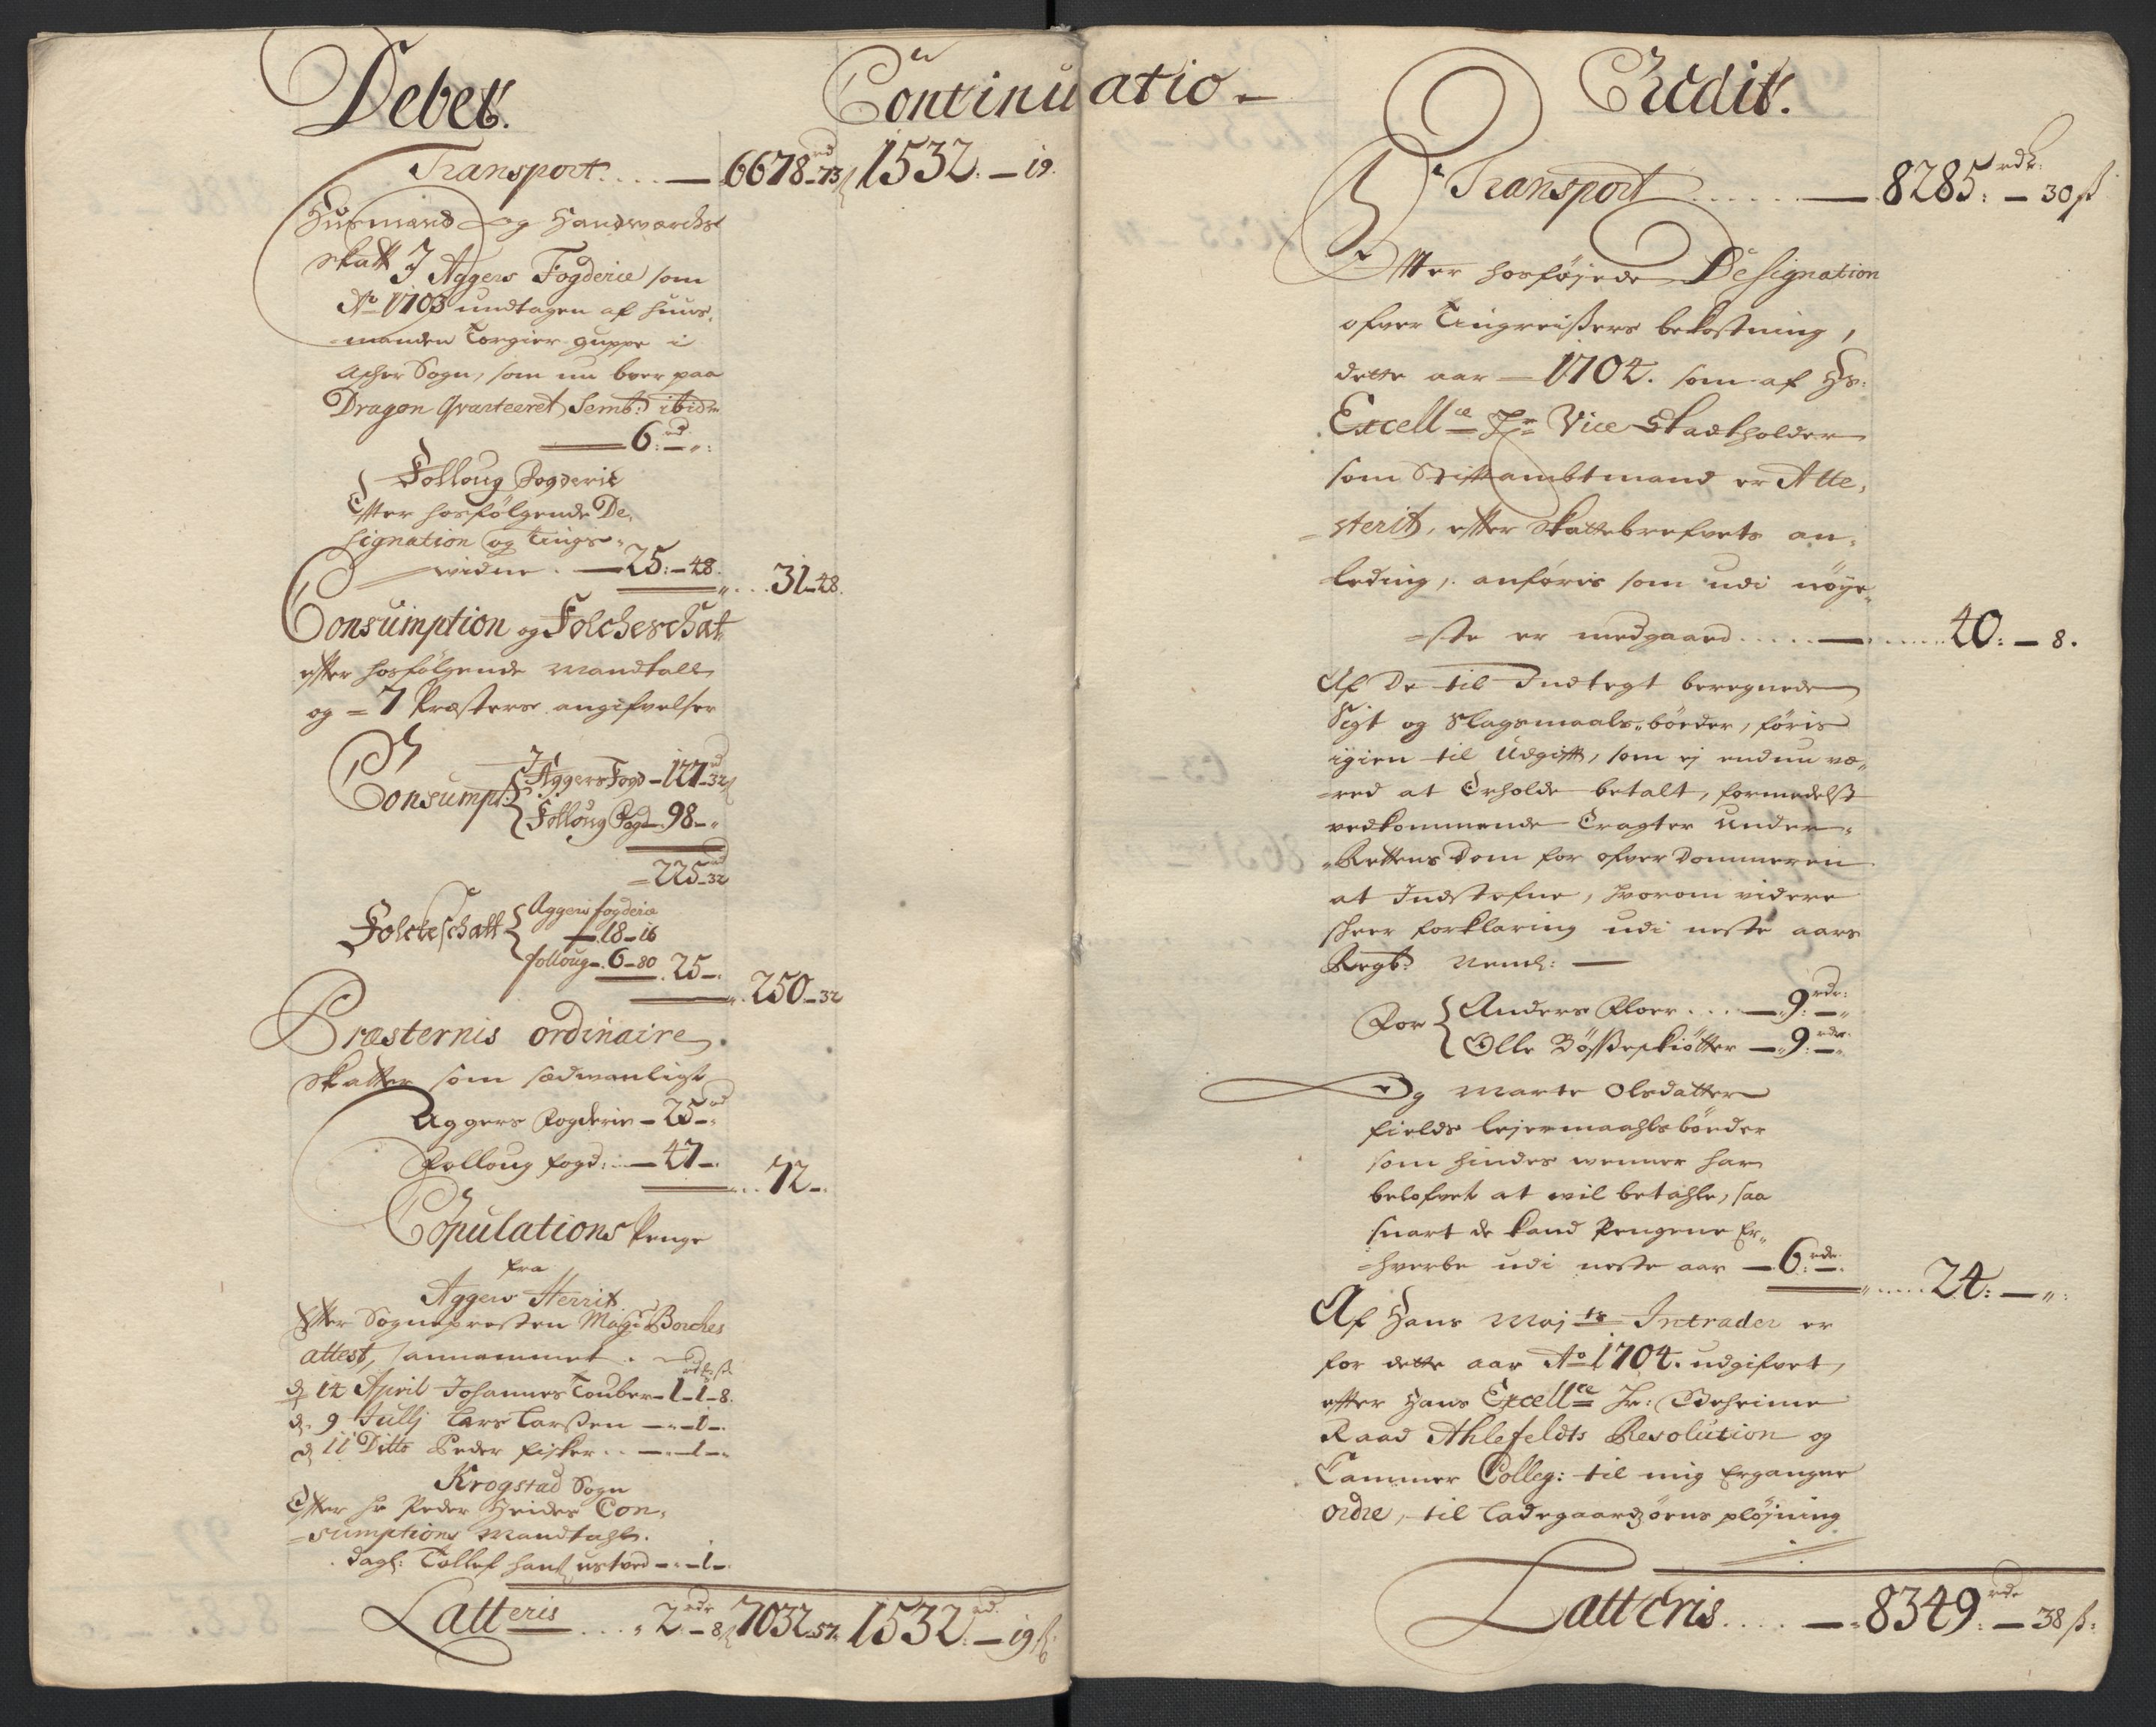 Debet. Continuatio
Transport.... — 6678 rd - 73 ß 1532. — 19.
Husmand og Handwærchs
skatt I Aggers Fogderie som
Ao 1703 undtagen af huus-
manden Torgier guppe i
Ascher Sogn, som nu boer paa
Dragon Qvarteeret Semb: ibid:
— 6 rd: — „:
Folloug Fogderie
Efter hosfølgende De-
signation og Tings-
widne. — 25: - 48. ... 31 - 48.
Consumption og Folcheschat
efter hosfølgende Mandtall
og = 7 Præsters angifvelser
Consumpt: { I Aggers Fogd - 127 rd - 32 ß
Folloug Fogd - 98 - „
= 225 rd - 32
Folckeschatt { Aggers fogderie
— 18 - 16
folloug - 6 - 80 . 25 - . . 250 - 32
Præsternis ordinaire
Skatter som sædwanligt
Aggers Fogderie - 25 rd - „
Folloug fogd: — 47 -. ... 72 - .
Copulations Penge
fra
Aggers Herrit
Efter Sognepresten Mag: Borches
attest, annammet.
d. 14 April Johannes Touber - 1 - 1 - 8.
d. 9 Julij Lars Larsen — „ - 1 - .
d. 11 Ditto Peder fisker .. — „ - 1 - „
Krogstad Sogn
Efter hr Peder Heides Con-
sumptions Mandtahl.
dagl: Tollef hans ustved - „ - 1 - .
Latteris .... „ 2 rdr - 8 ß 7032 - 57. 1532 rd. — 19 ß
Credit.
Transport ...... — 8285: rdr: — 30 ß
Efter hosføjede Designation
ofver Tingreisers bekostning,
dette aar — 1704. som af Hs:
Excellce Hr Vice Stadtholder
som Stiftambtmand er Atte-
sterit, efter Skattebrefvets an-
leding, anføris som udi nøye-
ste er medgaaed ..... — ...... 40: — 8.
Af De til Indtegt beregnede
Sigt og Slagsmaals-bøeder, føris
igien til Udgift, som ej endnu væ-
red at Erholde betalt, formedelst
vedkommende Tragter Under-
Rettens Dom for ofver Dommeren
at Indstefne, hvorom videre
skeer forklaring udi neste aars
Regb: Neml: —
For { Anders Floer ... — 9 rdr: — „
Olle Bøsseskiøtter — 9 rdr: — „
Og Marte Olsdatter
fields lejermaahls bøeder
som hindes wenner har
belofvet at wil betahle, saa
snart de kand Pengene Er-
hverbe udi neste aar — 6 rdr. — ..... 24: — „:
Af Hans Majts Intrader er
for dette aar Ao 1704. udgifvet,
efter Hans Excellce Hr: Geheime
Raad Ahlefeldts Resolution og
Cammer Colleg: til mig Ergangne
ordre, til Ladegaardzøens pløjning
Latteris .... — „ 8349 rdr: — 38 ß: